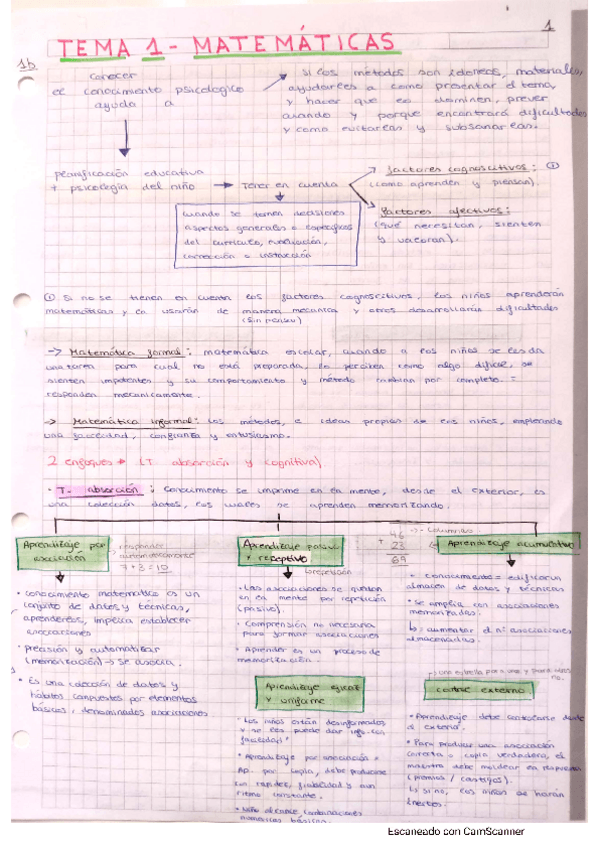 1
TEMA 1 - MATEMÁTICAS
1b
conocer
el conocimiento psicologico
ayuda a
si los métodos son idoneos, materiales,
ayudarles a como presentar el tema,
y hacer que lo dominen, prever
cuando y porque encontrará dificultades
y como evitarlas y subsanarlas.
planificación educativa
+ psicología del niño → Tener en cuenta
factores cognoscitivos: ①
(como aprenden y piensan).
factores afectivos:
(qué necesitan, sienten
y valoran).
cuando se tomen decisiones
aspectos generales o específicos
del currículo, evaluación,
corrección o instrucción
① Si no se tienen en cuenta los factores cognoscitivos, los niños aprenderán
matemáticas y la usarán de manera mecánica y otros desarrollarán dificultades
(sin pensar)
→ Matemática formal: matemática escolar, cuando a los niños se les da
una tarea para cual no está preparada, lo perciben como algo difícil, se
sienten impotentes y su comportamiento y método cambian por completo. =
responden mecanicamente.
→ Matemática informal: los métodos, e ideas propias de los niños, empleando
una facilidad, confianza y entusiasmo.
2 enfoques → (T. absorción y cognitiva)
· T. absorción: conocimiento se imprime en la mente, desde el exterior, es
una colección datos, los cuales se aprenden memorizando.
Aprendizaje por
asociación
responder
automaticamente
7 + 3 = 10
· conocimiento matemático es un
conjunto de datos y técnicas,
aprenderlos, implica establecer
asociaciones
· precisión y automatizar
(memorización → se asocia.
· Es una colección de datos y
hábitos compuestos por elementos
básicos, denominados asociaciones
Aprendizaje pasivo
y receptivo
repetición
· Las asociaciones se quedan
en la mente por repetición
(pasivo).
· Comprensión no necesaria
para formar asociaciones
· Aprender es un proceso de
memorización.
Aprendizaje eficaz
y uniforme
· Los niños están desinformados
y se les puede dar info. con
facilidad
· Aprendizaje por asociación =
Ap. por copia, debe producirse
con rapidez, fiabilidad y a un
ritmo constante.
· Niño alcance combinaciones
numericas básicas.
46
+ 23
69
→ Columnas
Aprendizaje acumulativo
· conocimiento = edificar un
almacén de datos y técnicas
· Se amplia con asociaciones
memorizadas.
↳ aumentar el nº asociaciones
almacenadas.
control externo
· Aprendizaje debe controlarse desde
el exterior.
· Para producir una asociación
correcta o copia verdadera, el
maestro debe moldear en respuesta
(premios / castigos).
↳ si no, los niños se harán
inertes.
Escaneado con CamScanner